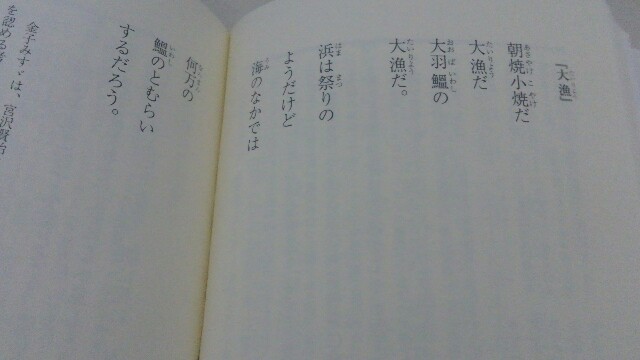 『大漁』
朝焼小焼だ
大漁だ
大羽鰮の
大漁だ。
浜は祭りの
ようだけど
海のなかでは
何万の
鰮のとむらい
するだろう。
金子みすゞは、宮沢賢治
を認める者